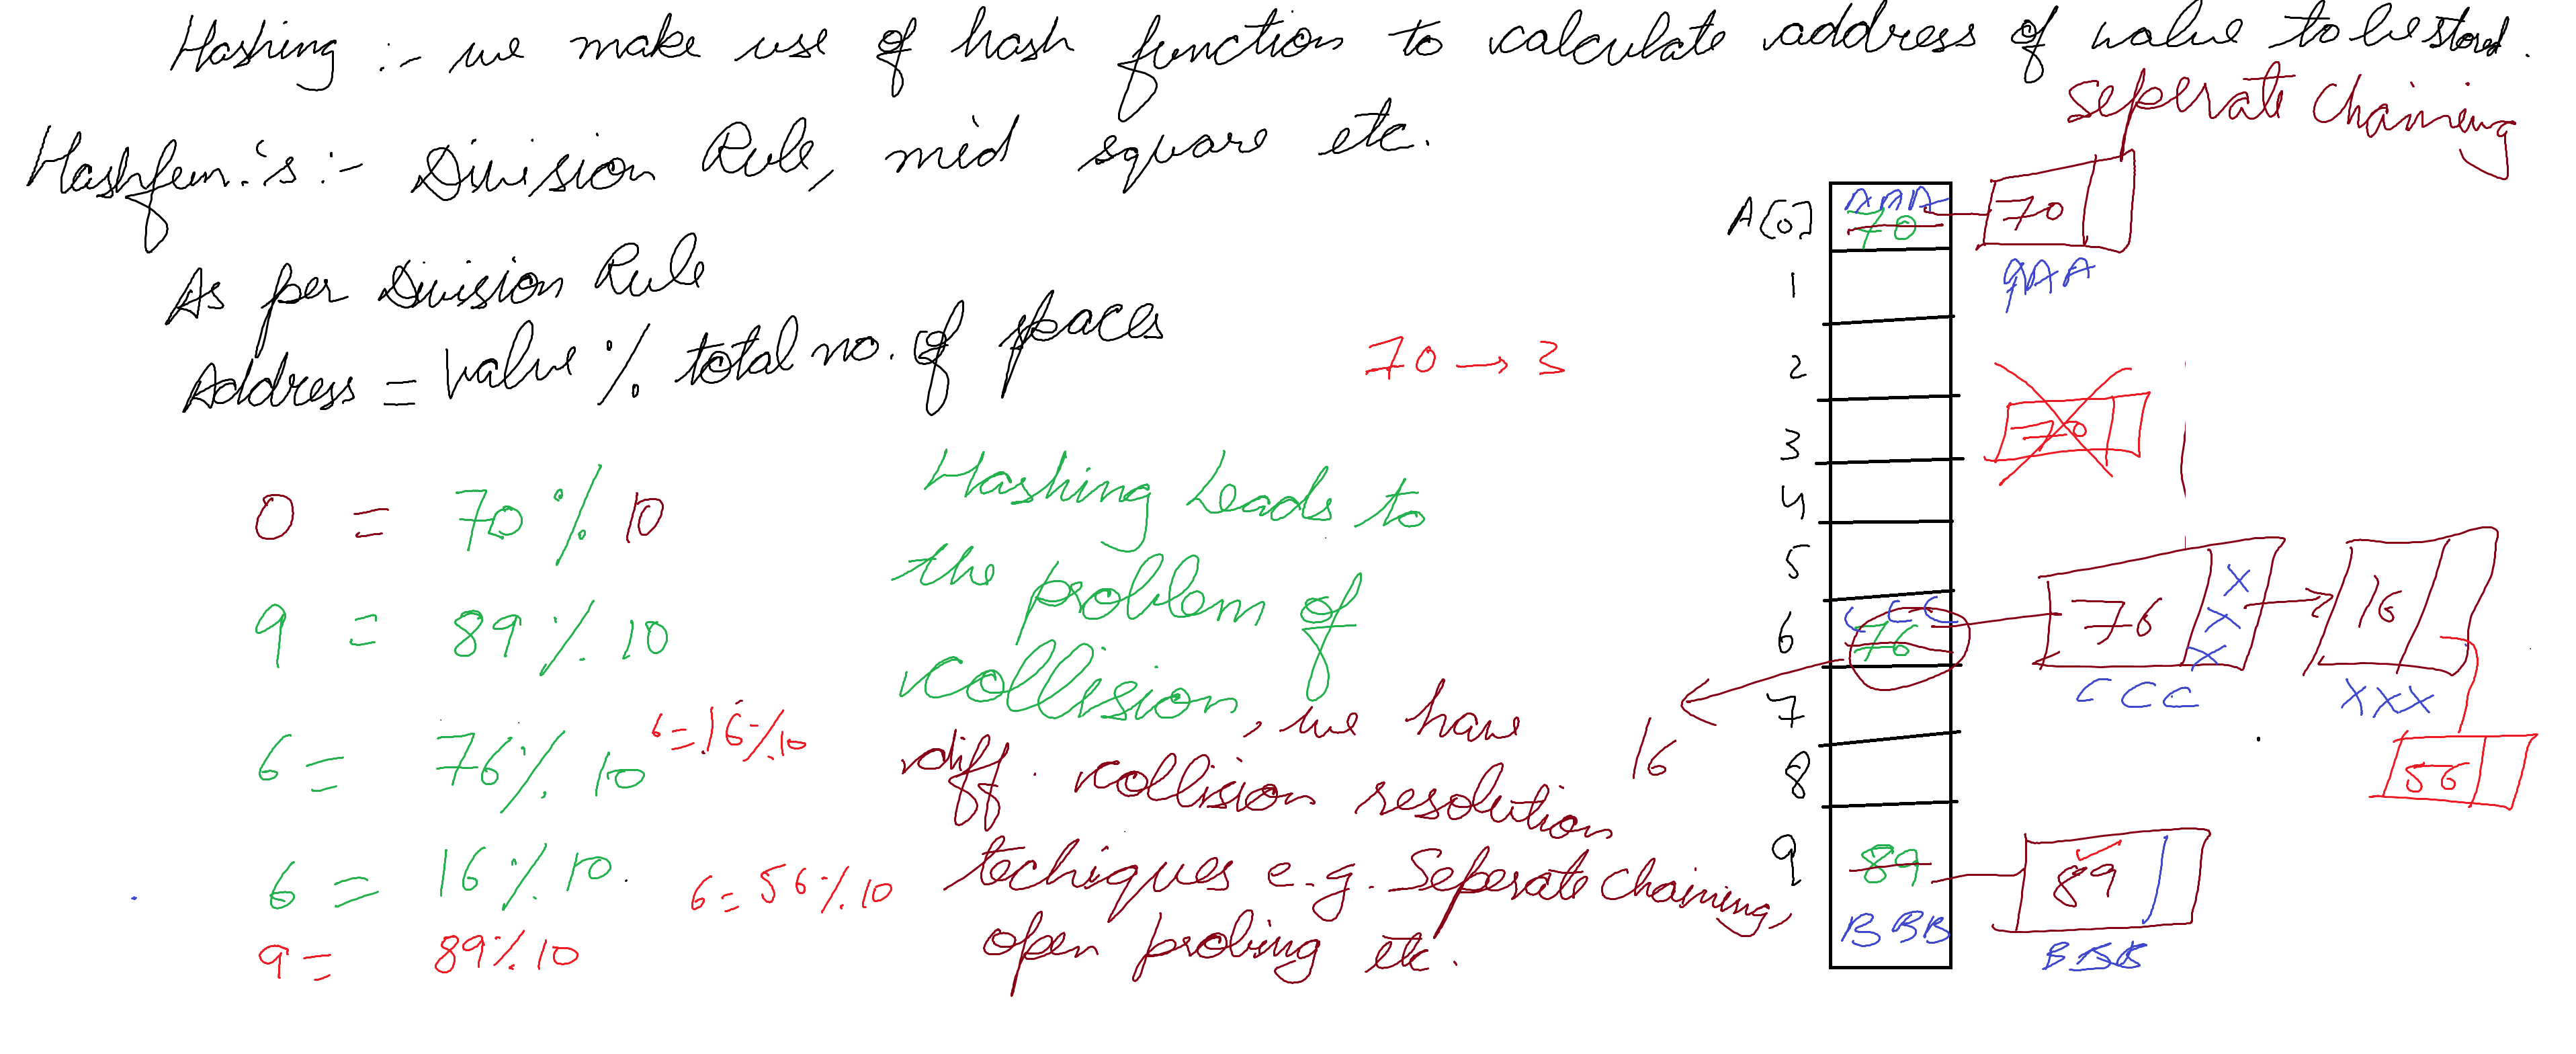 Hashing :- we make use of hash function to calculate address of value to be stored.
Seperate Chaining
Hashfun.'s :- Division Rule, mid square etc.
As per Division Rule
Address = Value % total no. of spaces
70 → 3
0 = 70 % 10
9 = 89 % 10
6 = 76 % 10
6 = 16 % 10
6 = 16 % 10
6 = 56 % 10
9 = 89 % 10
Hashing Leads to
the problem of
collision, we have
diff. collision resolution
techiques e.g. Seperate Chaining,
open probing etc.
16
A[0] AAA 70
1
2
3
4
5
6 CCC 76
7
8
9 89
BBB
70
AAA
70
76 XXX
CCC
16
XXX
56
89
BBB